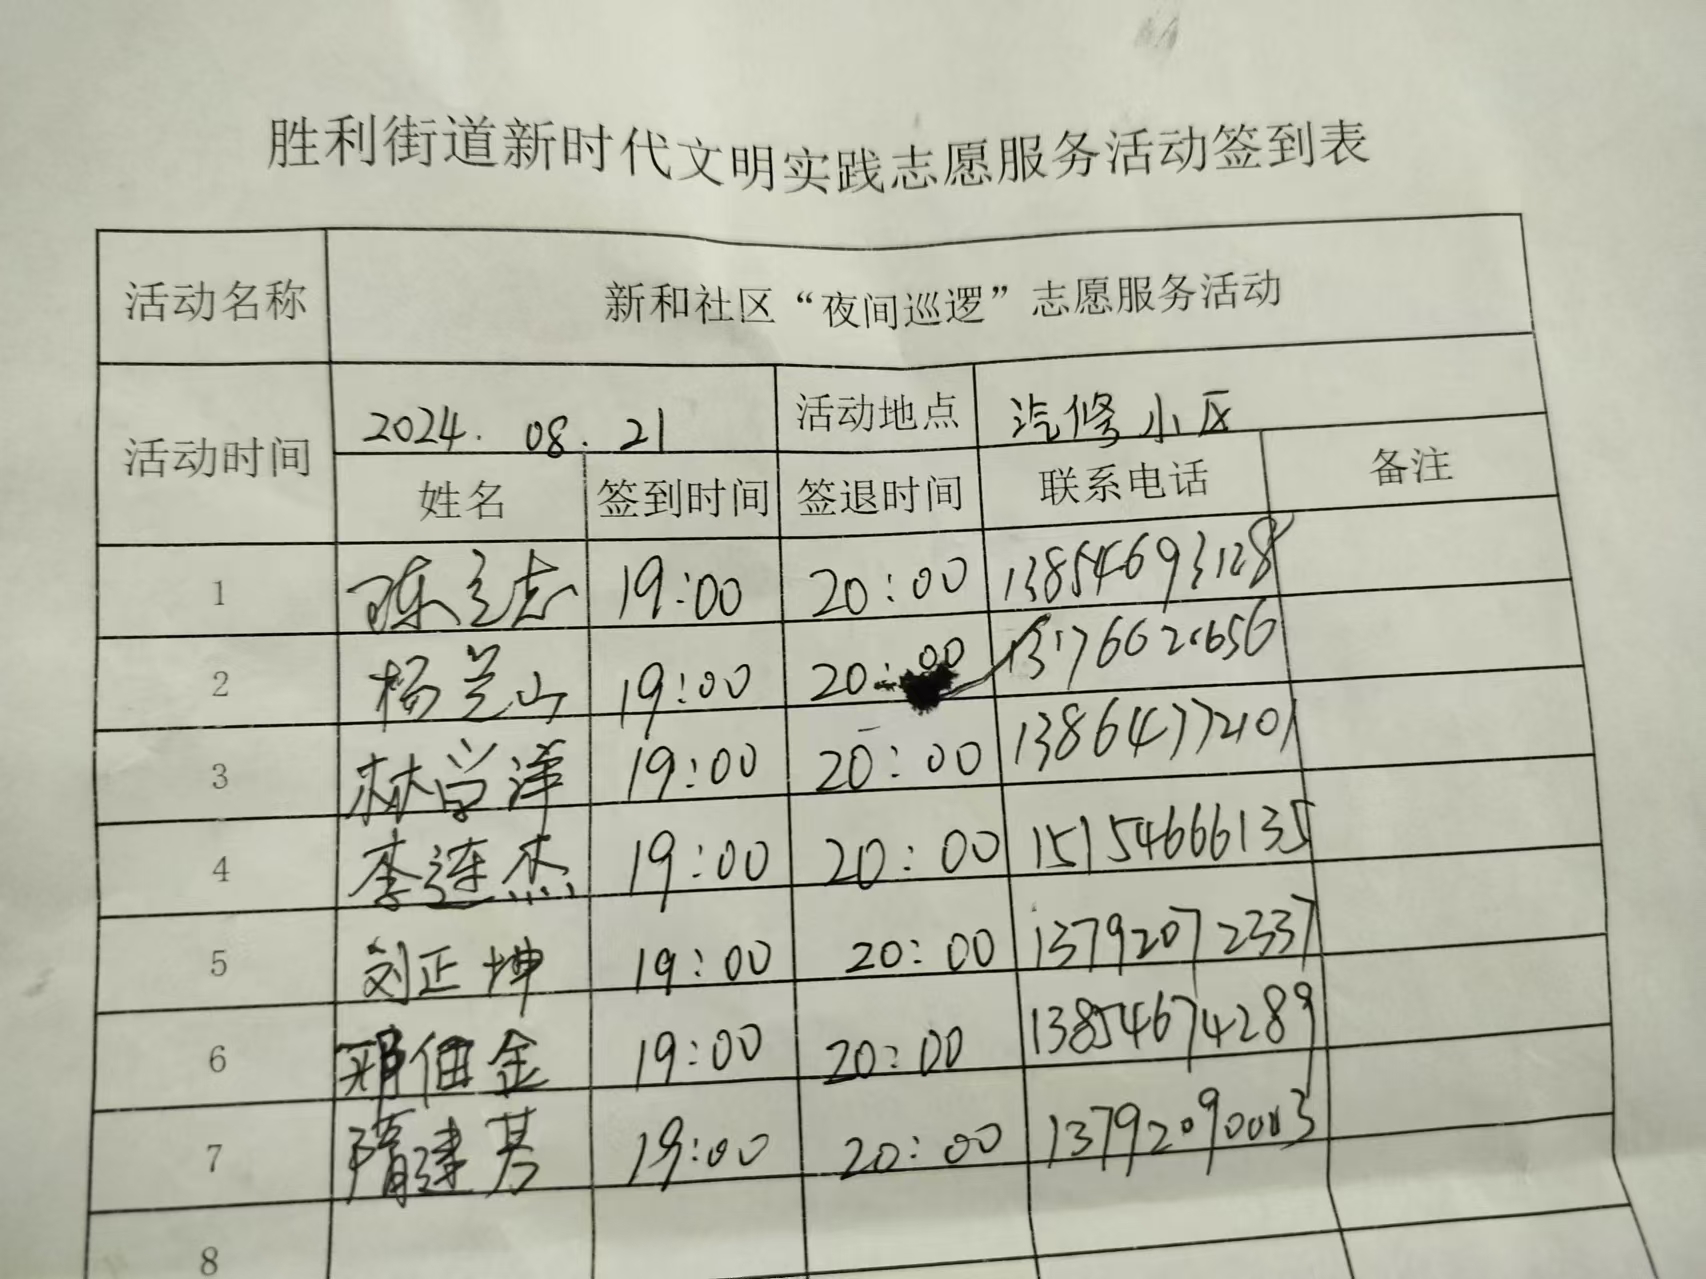 胜利街道新时代文明实践志愿服务活动签到表
活动名称 新和社区“夜间巡逻”志愿服务活动
活动时间 2024.08.21 活动地点 汽修小区
姓名 签到时间 签退时间 联系电话 备注
1 陈立志 19:00 20:00 13854693128
2 杨兰山 19:00 20:00
3 林学洋 19:00 20:00 13864772101
4 李连杰 19:00 20:00 15154666135
5 刘正坤 19:00 20:00 13792072337
6 19:00 20:00 13854674289
7 隋建基 19:00 20:00 13792090003
8